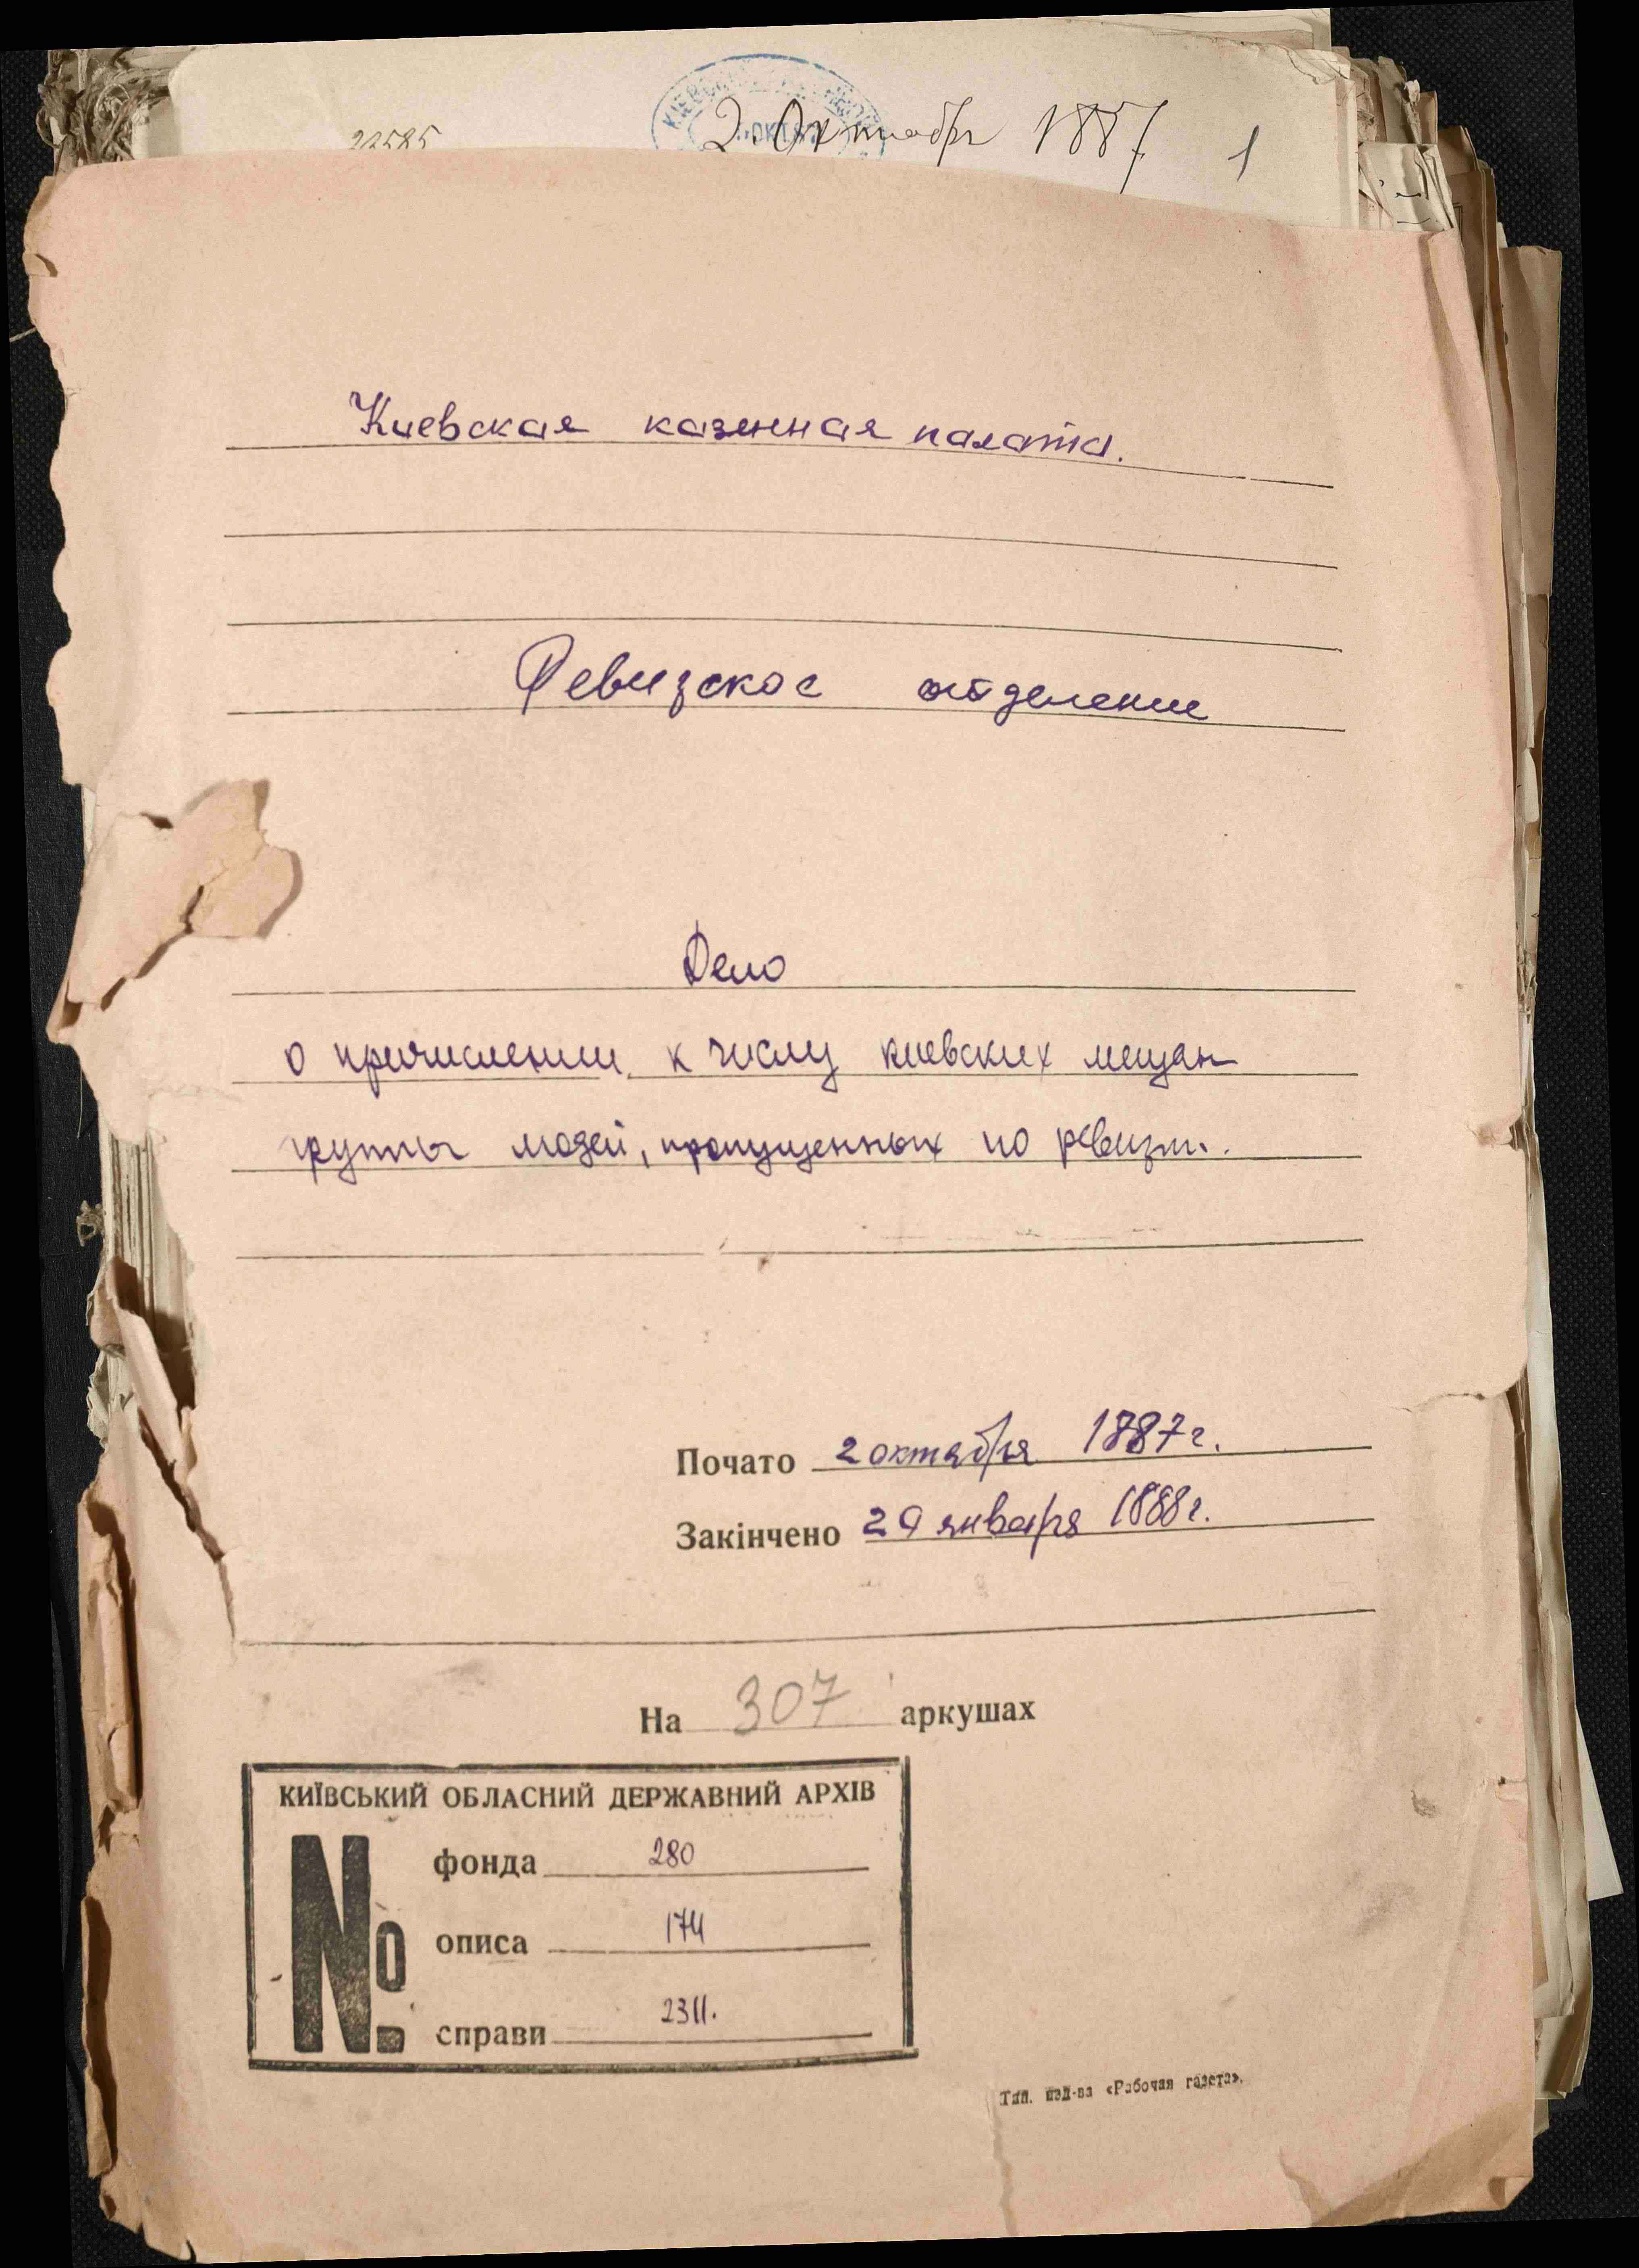 23585
2 Октября 1887 1
Киевская казенная палата.
Ревизское отделение
Дело
о причислении к числу киевских мещан
группы людей, пропущенных по ревизии.
Почато 2 октября 1887 г.
Закінчено 29 января 1888 г.
На 307 аркушах
КИЇВСЬКИЙ ОБЛАСНИЙ ДЕРЖАВНИЙ АРХІВ
№ фонда 280
описа 174
справи 2311.
Тип. изд-ва «Рабочая газета».